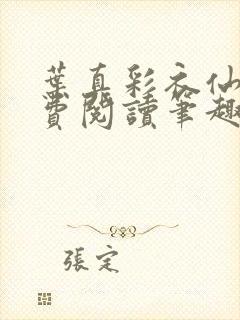 葉真彩衣仙
費閱讀筆趣
張定